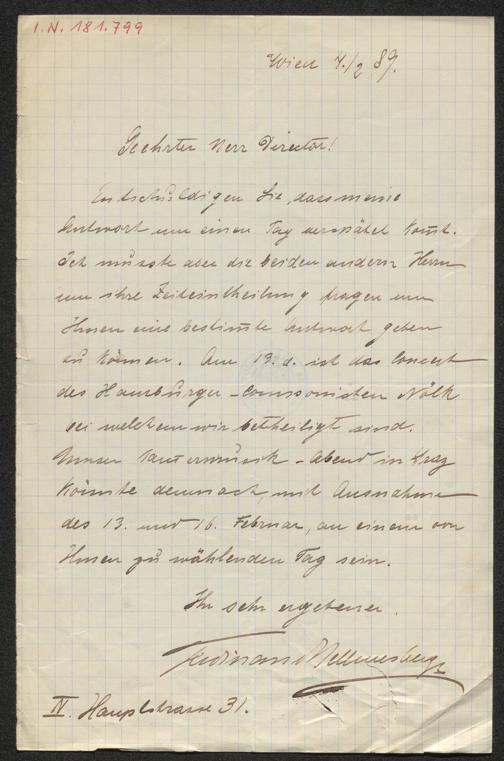 I.N. 181.799
Wien 7./2 89.
Geehrter Herr Director!
Entschuldigen Sie, dass meine
Antwort um einen Tag verspätet komt.
Ich musste aber die beiden andern Herrn
um ihre Zeiteintheilung fragen um
Ihnen eine bestimte Antwort geben
zu können. Am 13. d. ist das Concert
des Hamburger Componisten Nölk
bei welchem wir betheiligt sind.
Unser Kammermusik-Abend in Graz
könnte demnach, mit Ausnahme
des 13. und 16. Februar, an einem von
Ihnen zu wählenden Tag sein.
Ihr sehr ergebener
Ferdinand Hellmesberger
IV. Hauptstrasse 31.